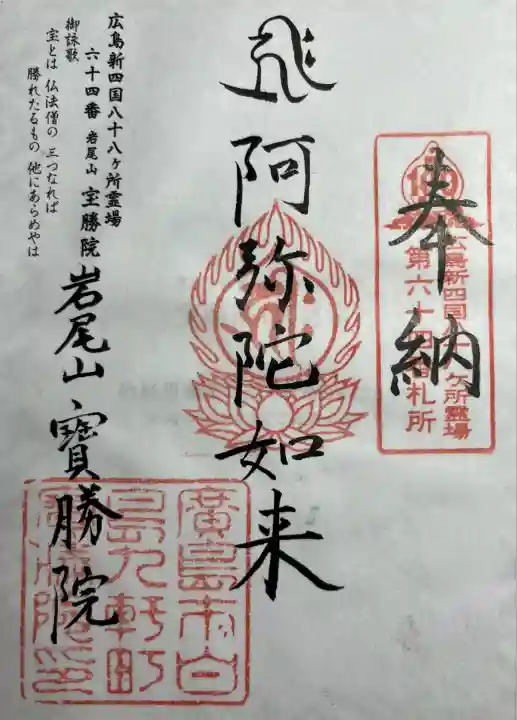 奉納
広島新四国八十八ヶ所霊場
第六十四番札所
阿弥陀如来
岩尾山 寳勝院
広島新四国八十八ヶ所霊場
六十四番 岩尾山 宝勝院
御詠歌
宝とは 仏法僧の 三つなれば
勝れたるもの 他にあらめやは
廣島市白
島九軒町